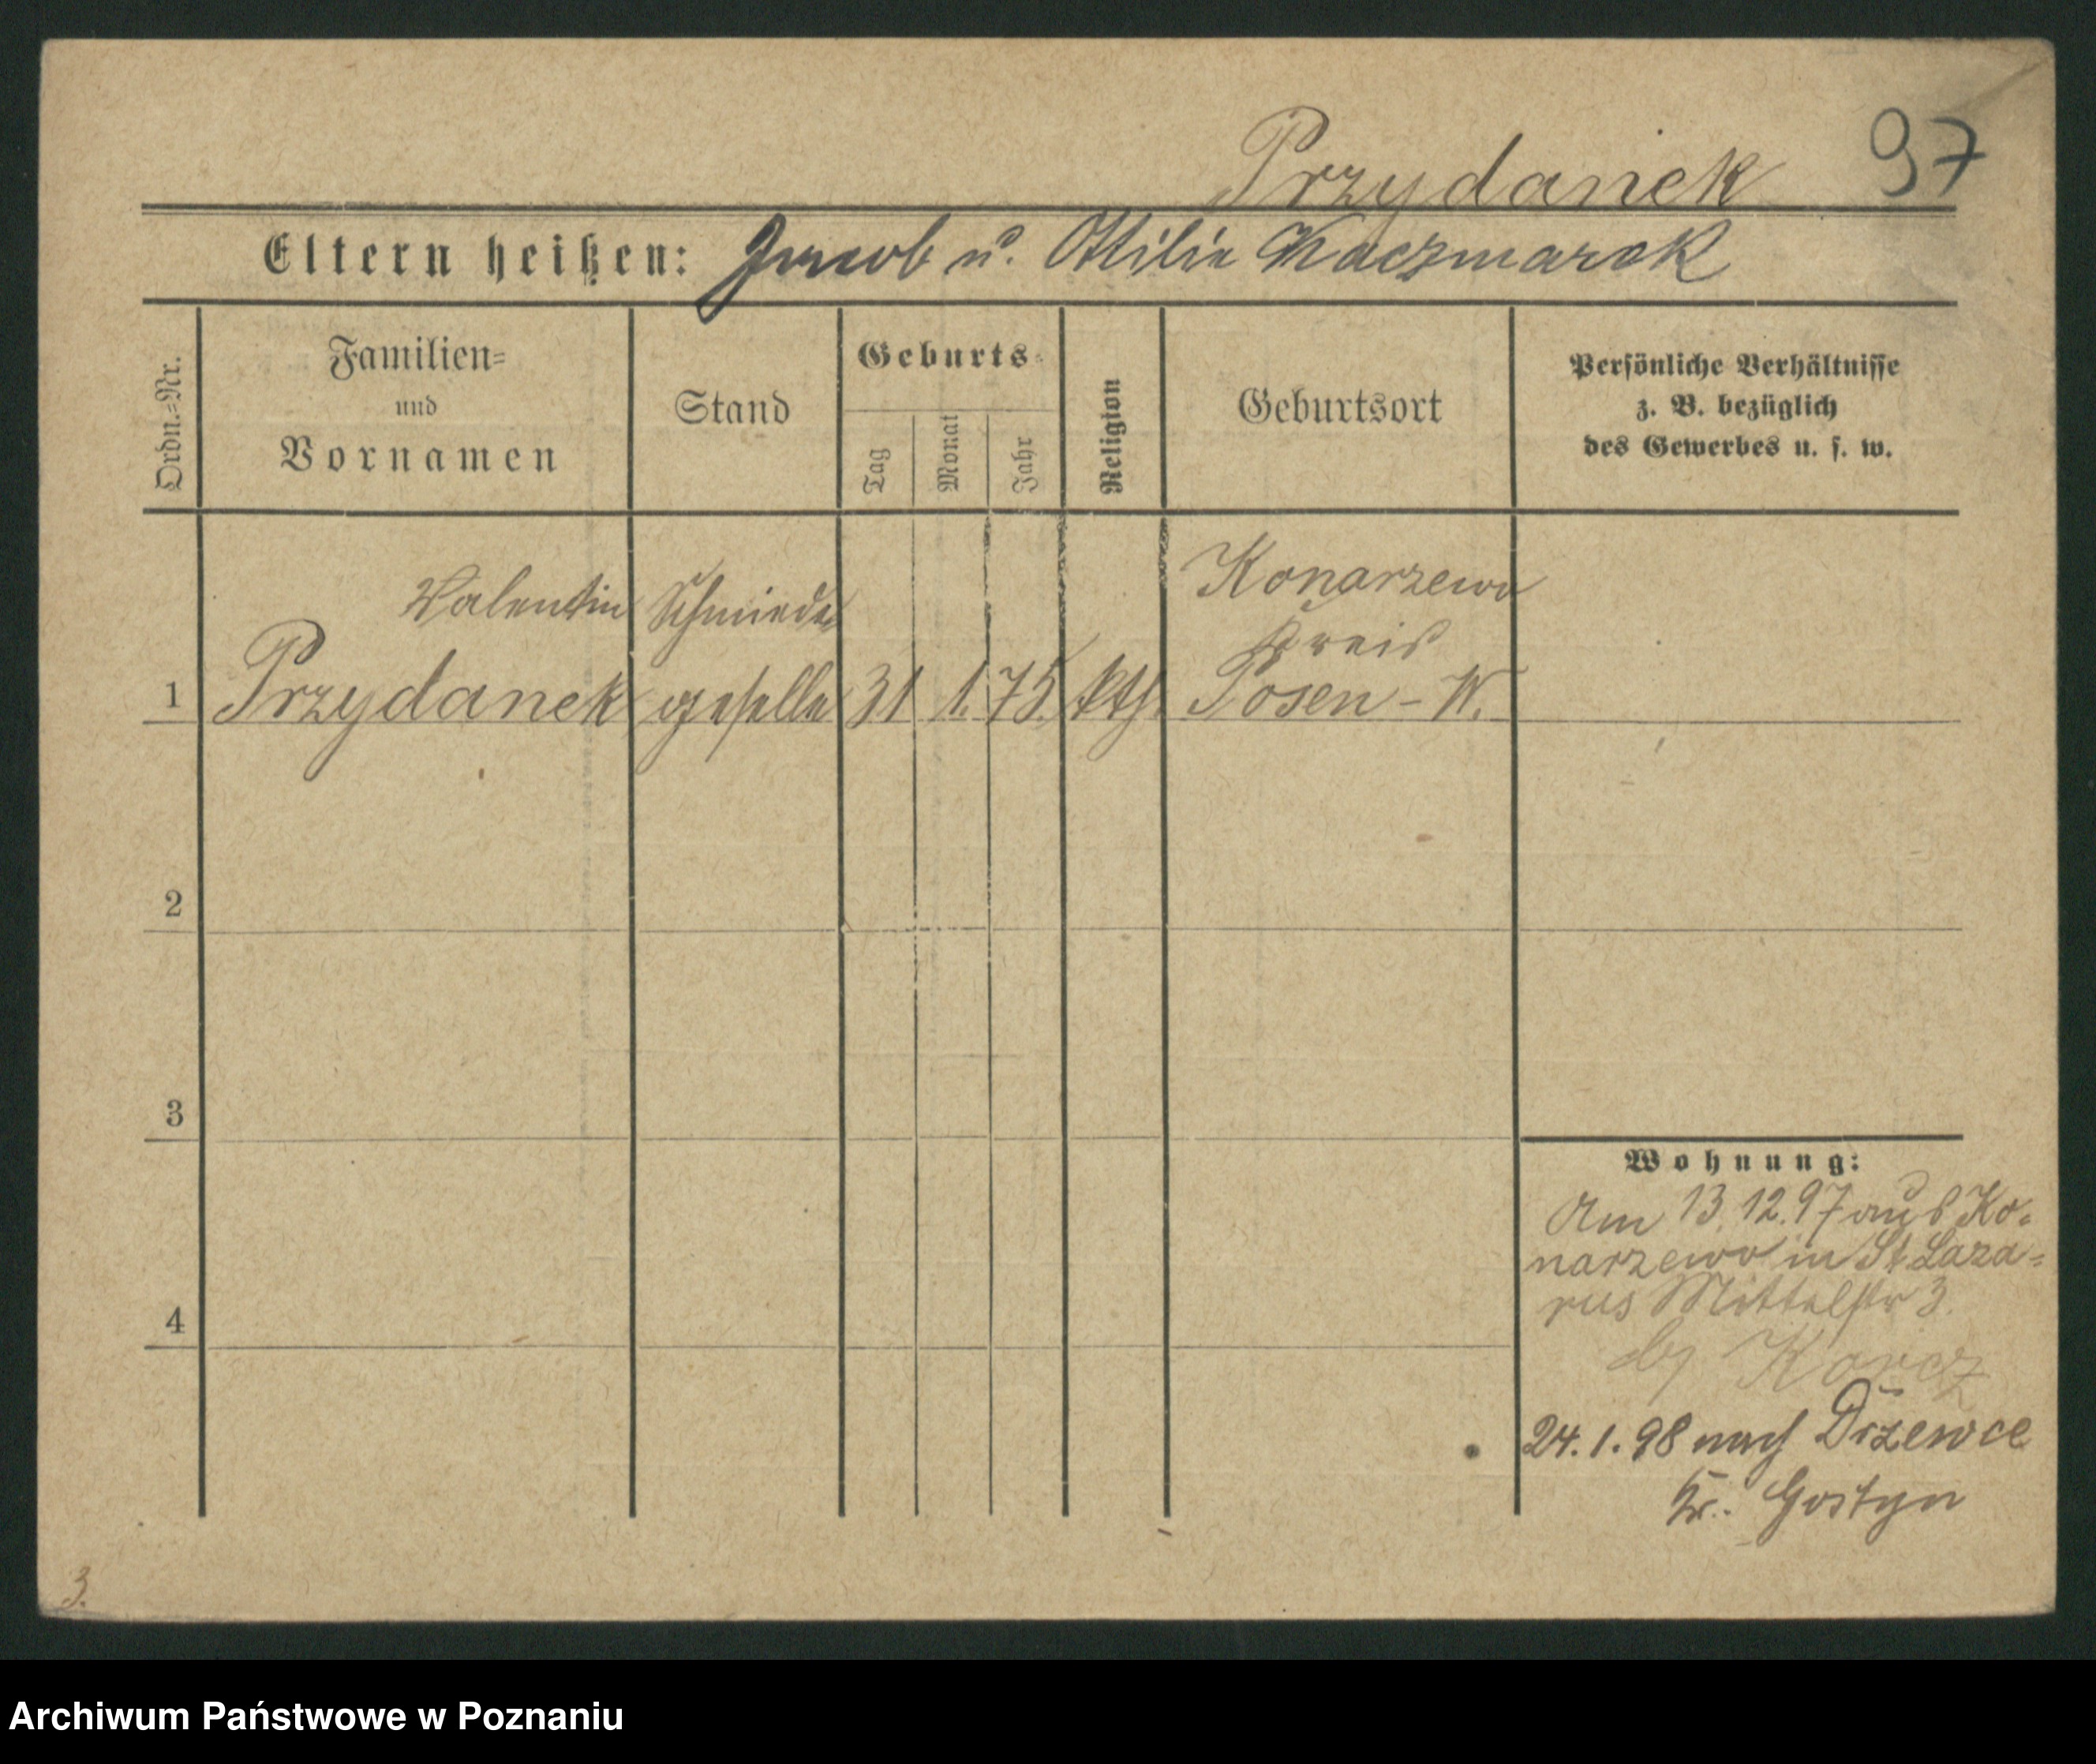 Przydanek 97
Eltern heißen: Jacob u. Ottilie Kaczmarek
Ordn.=Nr.
Familien=
und
Vornamen
Stand
Geburts=
Tag
Monat
Jahr
Religion
Geburtsort
Persönliche Verhältnisse
z. B. bezüglich
des Gewerbes u. s. w.
Valentin Schmiede Konarzewo
Kreis
1 Przydanek geselle 31 1. 75. kth. Posen - W.
2
3
Wohnung:
Am 13.12.97 aus Ko=
narzewo in St Laza=
rus Mittelstr 3.
4
Korcz
24.1.98 nach Drzewce
Kr. Gostyn
3.
Archiwum Państwowe w Poznaniu